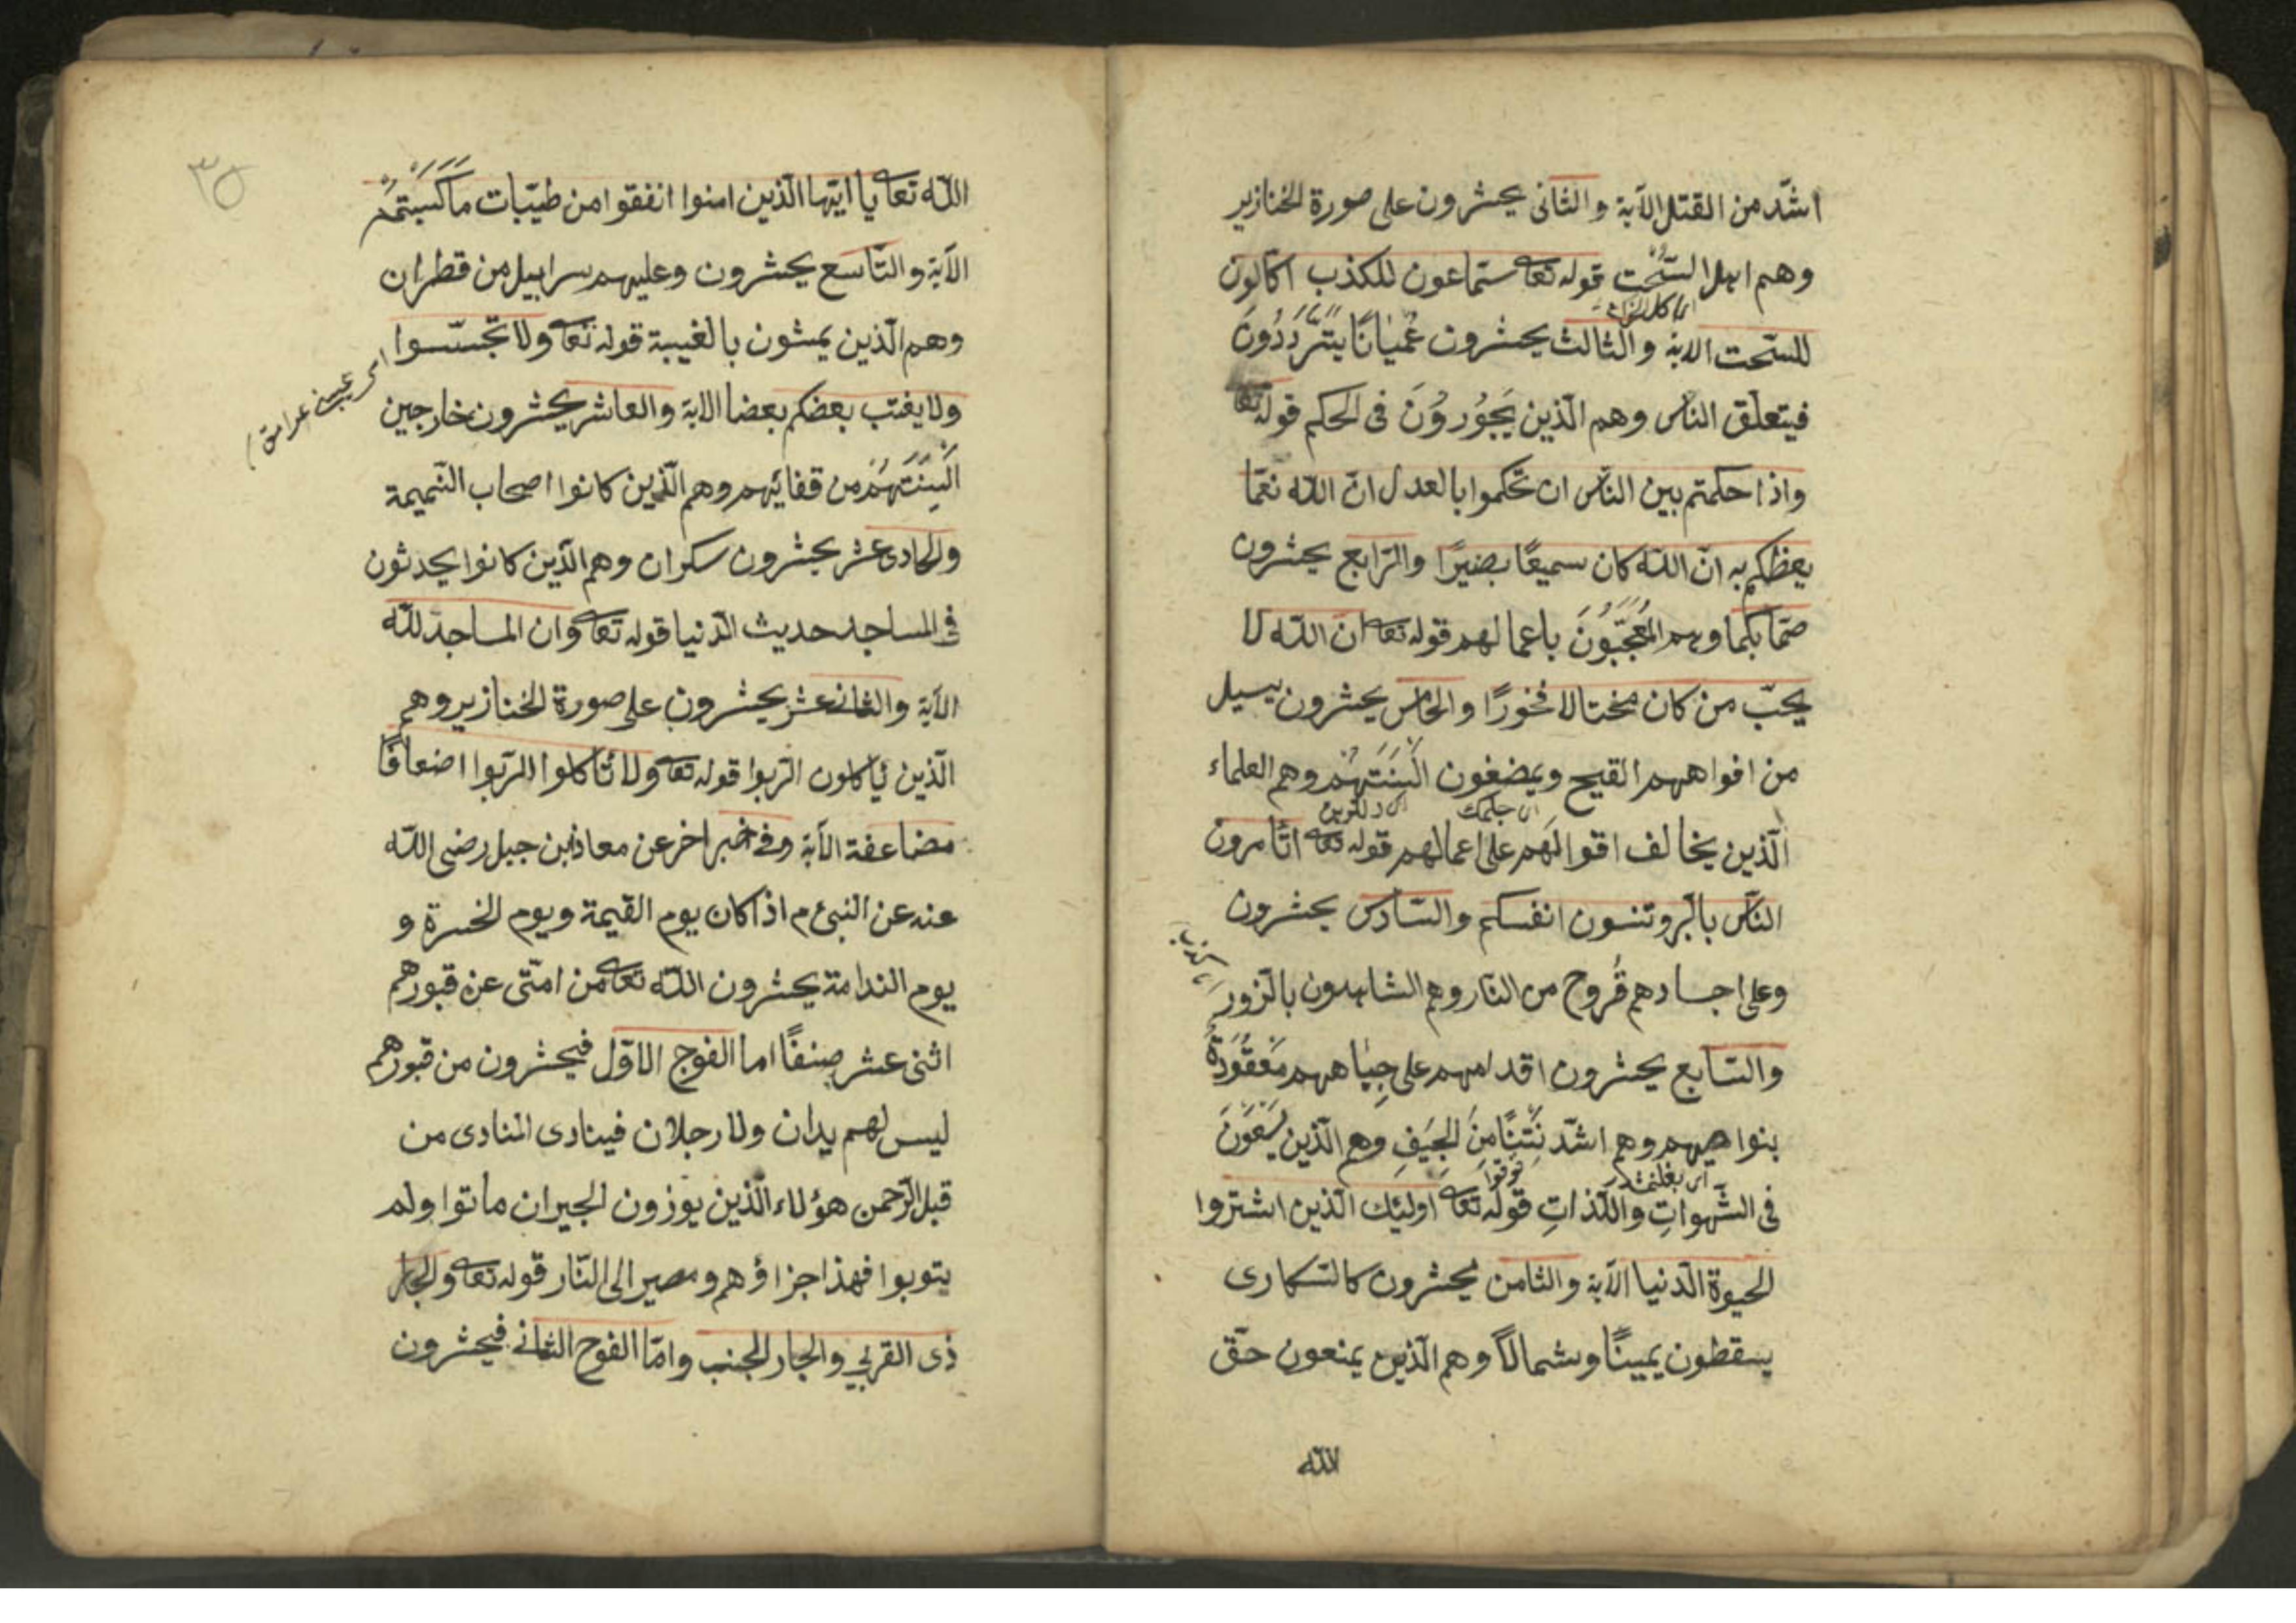 اشدّ من القتل الآية والثانى يحشرون على صورة الخنازير
وهم اهل السّحت قوله تعا ستماعون للكذب اكالون
للسّحت الاية والثالث يحشرون عُميانًا يتردّدُونَ
فيتعلّق الناس وهم الّذين يَجُورُوُنَ فى الحكم قوله تعا
واذا حكمتم بين الناس ان تحكموا بالعدل انّ الله نعمّا
يعظكم به انّ الله كان سميعًا بصيرًا والرّابع يحشرون
صمّا بكما وهم المُعجَبُونَ باعمالهم قوله تعا ان الله لا
يحبّ من كان مختالا فخورًا والخامس يحشرون يسيل
من افواههم القيح ويمضغون اَلْسِنَتَهُمْ وهم العلماء
الّذين يخالف اقوالهم على اعمالهم قوله تعا اتأمرون
الناس بالبر وتنسون انفسكم والسّادس يحشرون
وعلى اجسادهم قُروح من النّار وهم الشاهدون بالزّور
والسّابع يحشرون اقدامهم على جِباههم مَعقُودَةٌ
بنواصيهم وهم اشدّ نَتِنًا مِنَ الجِيَفِ وهم الّذين يسعَوْنَ
فى الشّهواتِ واللّذاتِ قوله تعا اولئك الّذين اشتروا
الحيوة الدّنيا الآية والثامن يحشرون كالسّكارى
يسقطون يمينًا وشمالاً وهم الّذين يمنعون حقّ
الله
٣٥
الله تعا يا ايّها الّذين امنوا انفقوا من طيّبات ما كَسَبْتُمْ
الآية والتّاسع يحشرون وعليهم سرابيل من قطران
وهم الّذين يمشون بالغيبة قوله تعا ولا تجسّسوا
ولا يغتب بعضكم بعضا الاية والعاشر يحشرون خارجين
اَلْسِنَتُهُمْ من قفائهم وهم الّذين كانوا اصحاب النّميمة
والحادى عشر يحشرون سكران وهم الّذين كانوا يحدثون
فى المساجد حديث الدّنيا قوله تعا وان المساجد لله
الآية والثانى عشر يحشرون على صورة الخنازير وهم
الّذين يأكلون الرّبوا قوله تعا ولا تأكلوا الرّبوا اضعافًا
مضاعفة الآية وفى خبر اخر عن معاذ بن جبل رضى الله
عنه عن النبى م اذا كان يوم القيمة ويوم الحسرة و
يوم الندامة يحشرون الله تعا من امّتى عن قبورهم
اثنى عشر صنفًا اما الفوج الاوّل فيحشرون من قبورهم
ليس لهم يدان ولا رجلان فينادى المنادى من
قبل الرّحمن هؤلاء الّذين يوزون الجيران ماتوا ولم
يتوبوا فهذا جزاؤهم ومصير الى النّار قوله تعا والجار
ذى القربى والجار الجنب وامّا الفوج الثانى فيحشرون